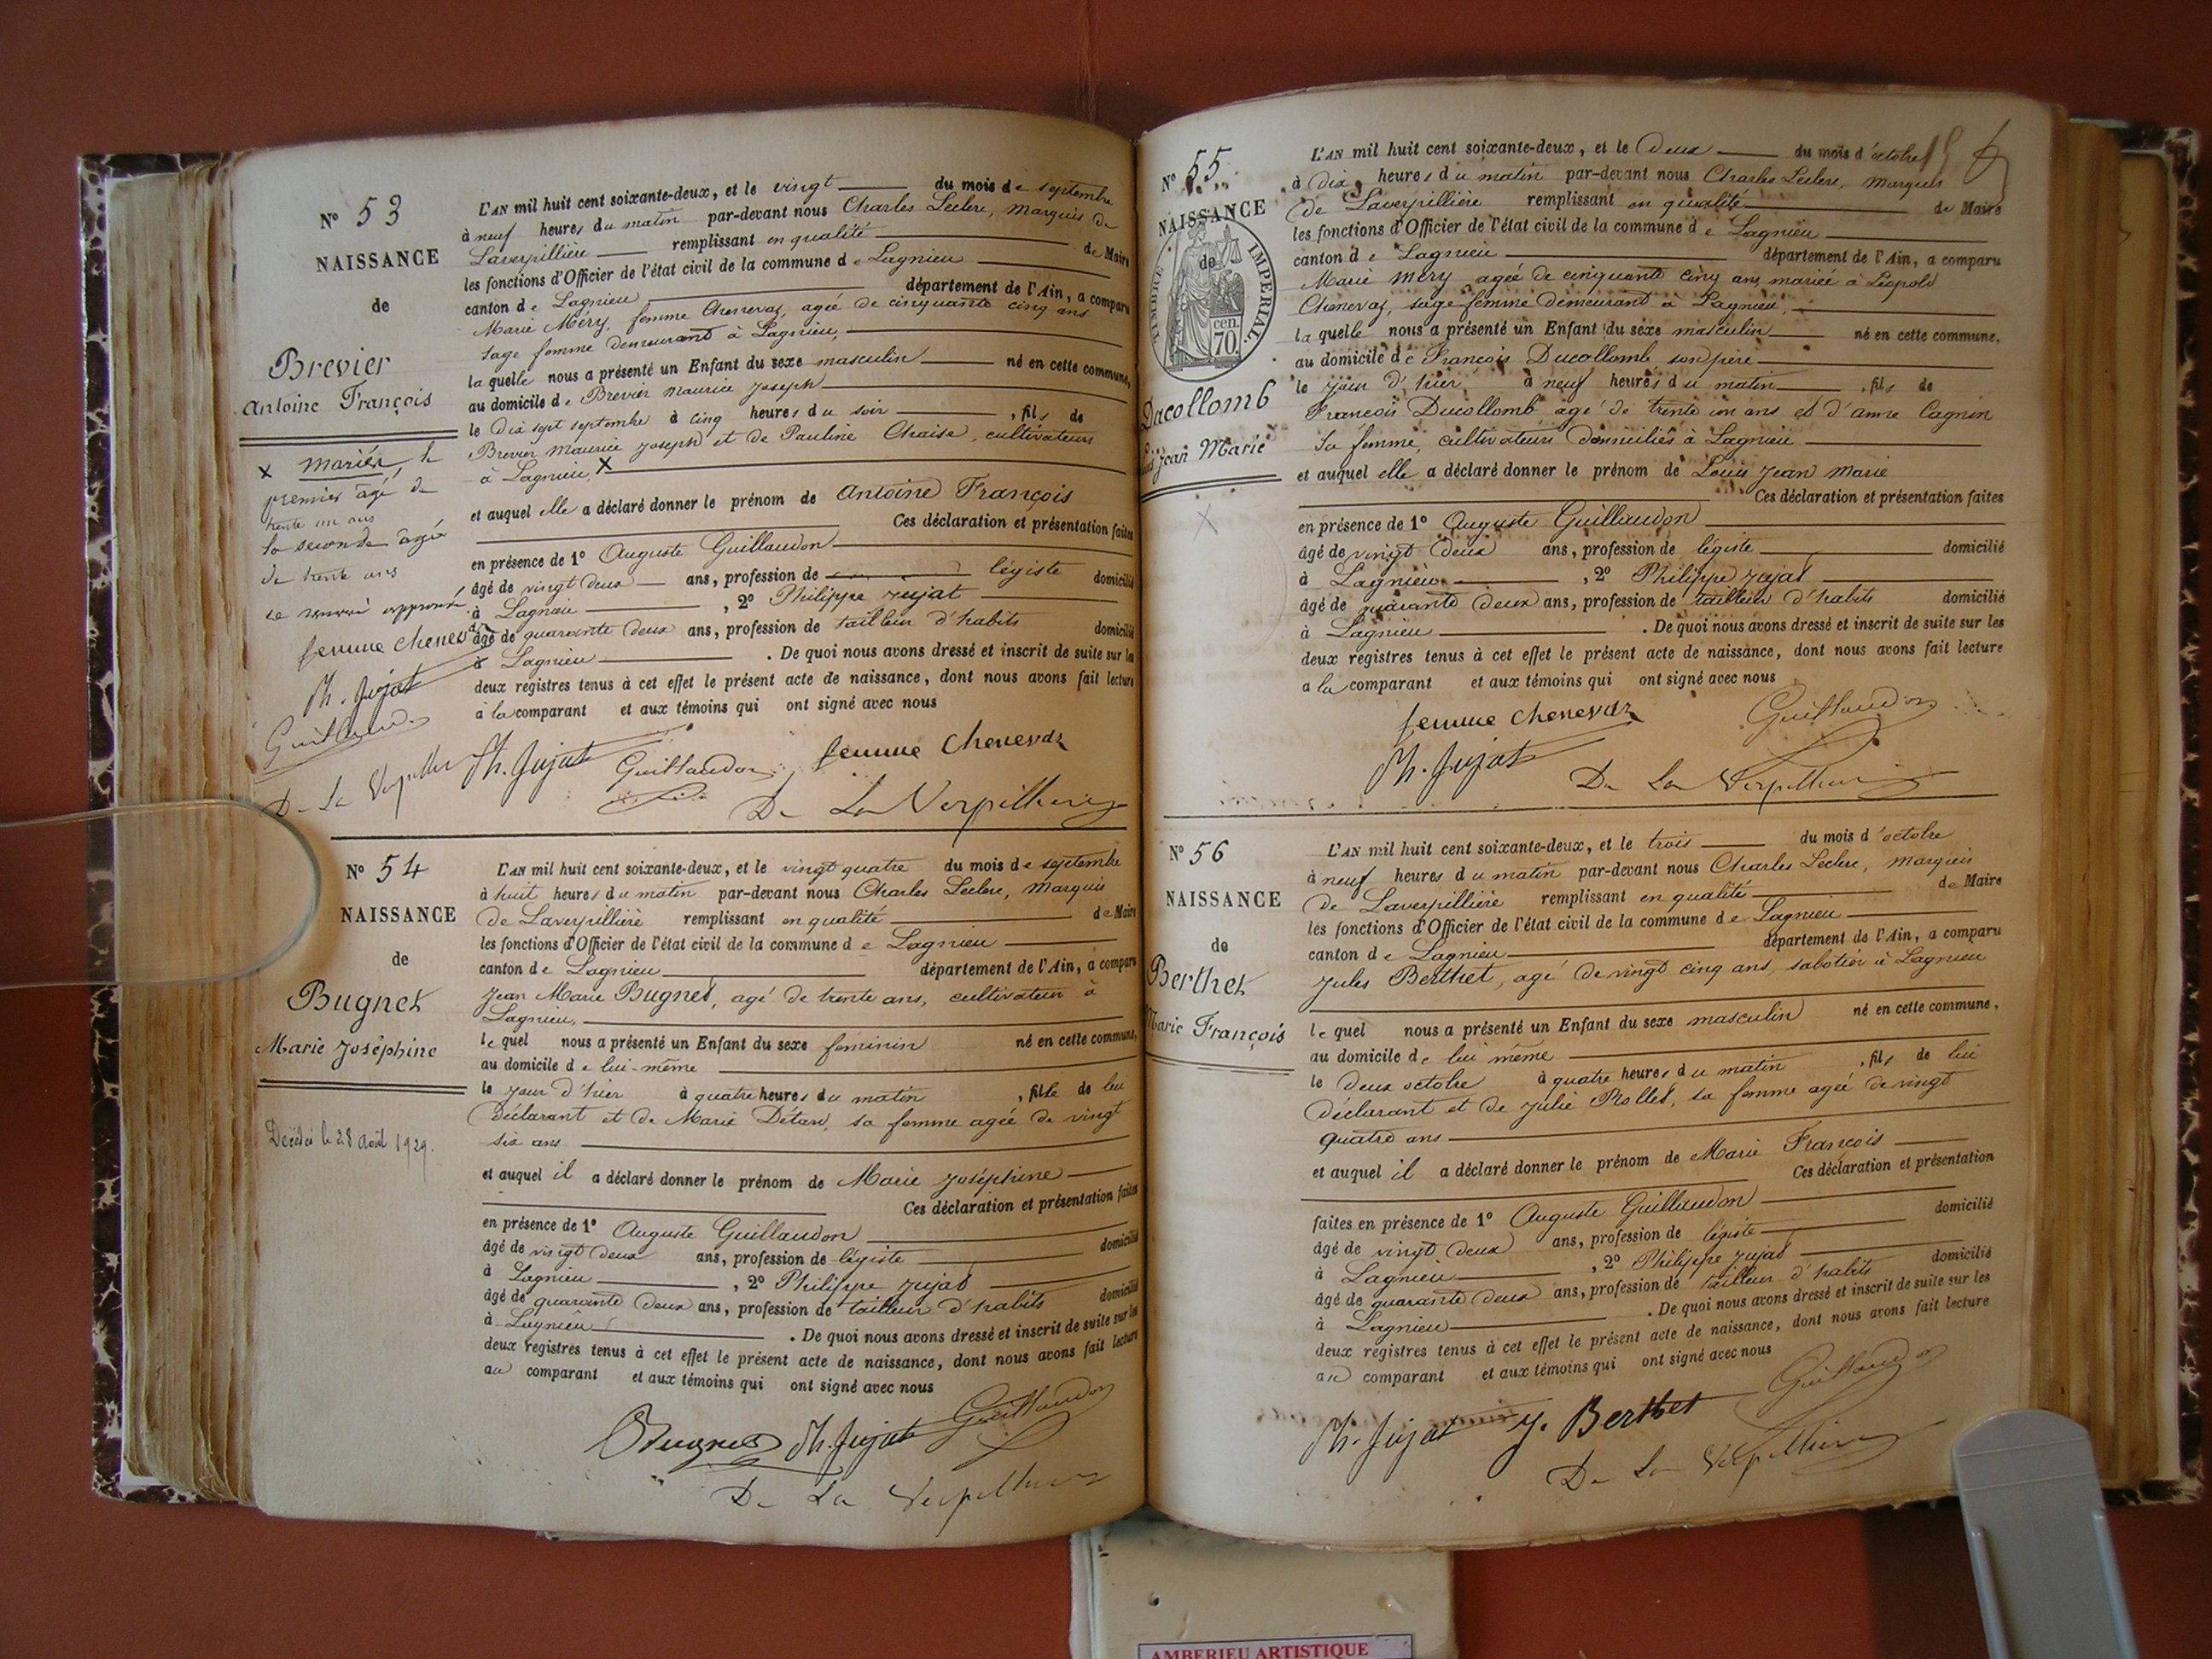 N° 53
NAISSANCE
de
Brevier
Antoine François
L'AN mil huit cent soixante-deux, et le vingt du mois de septembre
à neuf heures du matin par-devant nous Charles Leclerc, Marquis de
Laverpillière remplissant en qualité de Maire
les fonctions d'Officier de l'état civil de la commune de Lagnieu
canton de Lagnieu département de l'Ain, a comparu
Marie Méry, femme Chenevaz, agée de cinquante cinq ans
sage femme demeurant à Lagnieu,
laquelle nous a présenté un Enfant du sexe masculin né en cette commune,
au domicile de Brevier Maurice Joseph
le dix sept septembre à cinq heures du soir , fils de
Brevier Maurice Joseph et de Pauline Chaise, cultivateurs
à Lagnieu, X
et auquel elle a déclaré donner le prénom de Antoine François
Ces déclaration et présentation faites
en présence de 1° Auguste Guillaudon
âgé de vingt deux ans, profession de légiste domicilié
à Lagnieu , 2° Philippe Jujat
âgé de quarante deux ans, profession de tailleur d'habits domicilié
à Lagnieu . De quoi nous avons dressé et inscrit de suite sur les
deux registres tenus à cet effet le présent acte de naissance, dont nous avons fait lecture
à la comparant et aux témoins qui ont signé avec nous
X mariés, le
premier âgé de
trente un ans
la seconde agée
de trente ans
ce renvoi approuvé.
femme Chenevaz
Ph. Jujat
Guillaudon
De La Verpillière
Ph. Jujat Guillaudon femme Chenevaz
De La Verpillière
N° 54
NAISSANCE
de
Bugnet
Marie Joséphine
Décédée le 28 Août 1929.
L'AN mil huit cent soixante-deux, et le vingt quatre du mois de septembre
à huit heures du matin par-devant nous Charles Leclerc, Marquis
de Laverpillière remplissant en qualité de Maire
les fonctions d'Officier de l'état civil de la commune de Lagnieu
canton de Lagnieu département de l'Ain, a comparu
Jean Marie Bugnet, agé de trente ans, cultivateur à
Lagnieu,
lequel nous a présenté un Enfant du sexe féminin né en cette commune,
au domicile de lui-même
le jour d'hier à quatre heures du matin , fille de lui
Déclarant et de Marie Détard, sa femme agée de vingt
six ans
et auquel il a déclaré donner le prénom de Marie Joséphine
Ces déclaration et présentation faites
en présence de 1° Auguste Guillaudon
âgé de vingt deux ans, profession de légiste domicilié
à Lagnieu , 2° Philippe Jujat
âgé de quarante deux ans, profession de tailleur d'habits domicilié
à Lagnieu . De quoi nous avons dressé et inscrit de suite sur les
deux registres tenus à cet effet le présent acte de naissance, dont nous avons fait lecture
au comparant et aux témoins qui ont signé avec nous
Bugnet Ph. Jujat Guillaudon
De La Verpillière
N° 55
NAISSANCE
de
TIMBRE IMPERIAL
70 cen.
Ducollomb
Jean Marie
L'AN mil huit cent soixante-deux, et le deux du mois d'octobre
à dix heures du matin par-devant nous Charles Leclerc, Marquis
de Laverpillière remplissant en qualité de Maire
les fonctions d'Officier de l'état civil de la commune de Lagnieu
canton de Lagnieu département de l'Ain, a comparu
Marie Méry, agée de cinquante cinq ans, mariée à Léopold
Chenevaz, sage-femme demeurant à Lagnieu,
laquelle nous a présenté un Enfant du sexe masculin né en cette commune,
au domicile de François Ducollomb son père
le jour d'hier à neuf heures du matin , fils de
François Ducollomb agé de trente un ans et d'anne Cagnin
sa femme, cultivateurs domiciliés à Lagnieu
et auquel elle a déclaré donner le prénom de Louis Jean Marie
Ces déclaration et présentation faites
en présence de 1° Auguste Guillaudon
âgé de vingt deux ans, profession de légiste domicilié
à Lagnieu , 2° Philippe Jujat
âgé de quarante deux ans, profession de tailleur d'habits domicilié
à Lagnieu . De quoi nous avons dressé et inscrit de suite sur les
deux registres tenus à cet effet le présent acte de naissance, dont nous avons fait lecture
a la comparant et aux témoins qui ont signé avec nous
femme Chenevaz Guillaudon
Ph. Jujat De La Verpillière
N° 56
NAISSANCE
de
Berthet
Marie François
L'AN mil huit cent soixante-deux, et le trois du mois d'octobre
à neuf heures du matin par-devant nous Charles Leclerc, Marquis
de Laverpillière remplissant en qualité de Maire
les fonctions d'Officier de l'état civil de la commune de Lagnieu
canton de Lagnieu département de l'Ain, a comparu
Jules Berthet, agé de vingt cinq ans, sabotier à Lagnieu
lequel nous a présenté un Enfant du sexe masculin né en cette commune,
au domicile de lui même
le deux octobre à quatre heures du matin , fils de lui
déclarant et de Julie Rollet, sa femme agée de vingt
quatre ans
et auquel il a déclaré donner le prénom de Marie François
Ces déclaration et présentation
faites en présence de 1° Auguste Guillaudon
âgé de vingt deux ans, profession de légiste domicilié
à Lagnieu , 2° Philippe Jujat
âgé de quarante deux ans, profession de tailleur d'habits domicilié
à Lagnieu . De quoi nous avons dressé et inscrit de suite sur les
deux registres tenus à cet effet le présent acte de naissance, dont nous avons fait lecture
au comparant et aux témoins qui ont signé avec nous
Ph. Jujat J. Berthet Guillaudon
De La Verpillière
AMBERIEU ARTISTIQUE